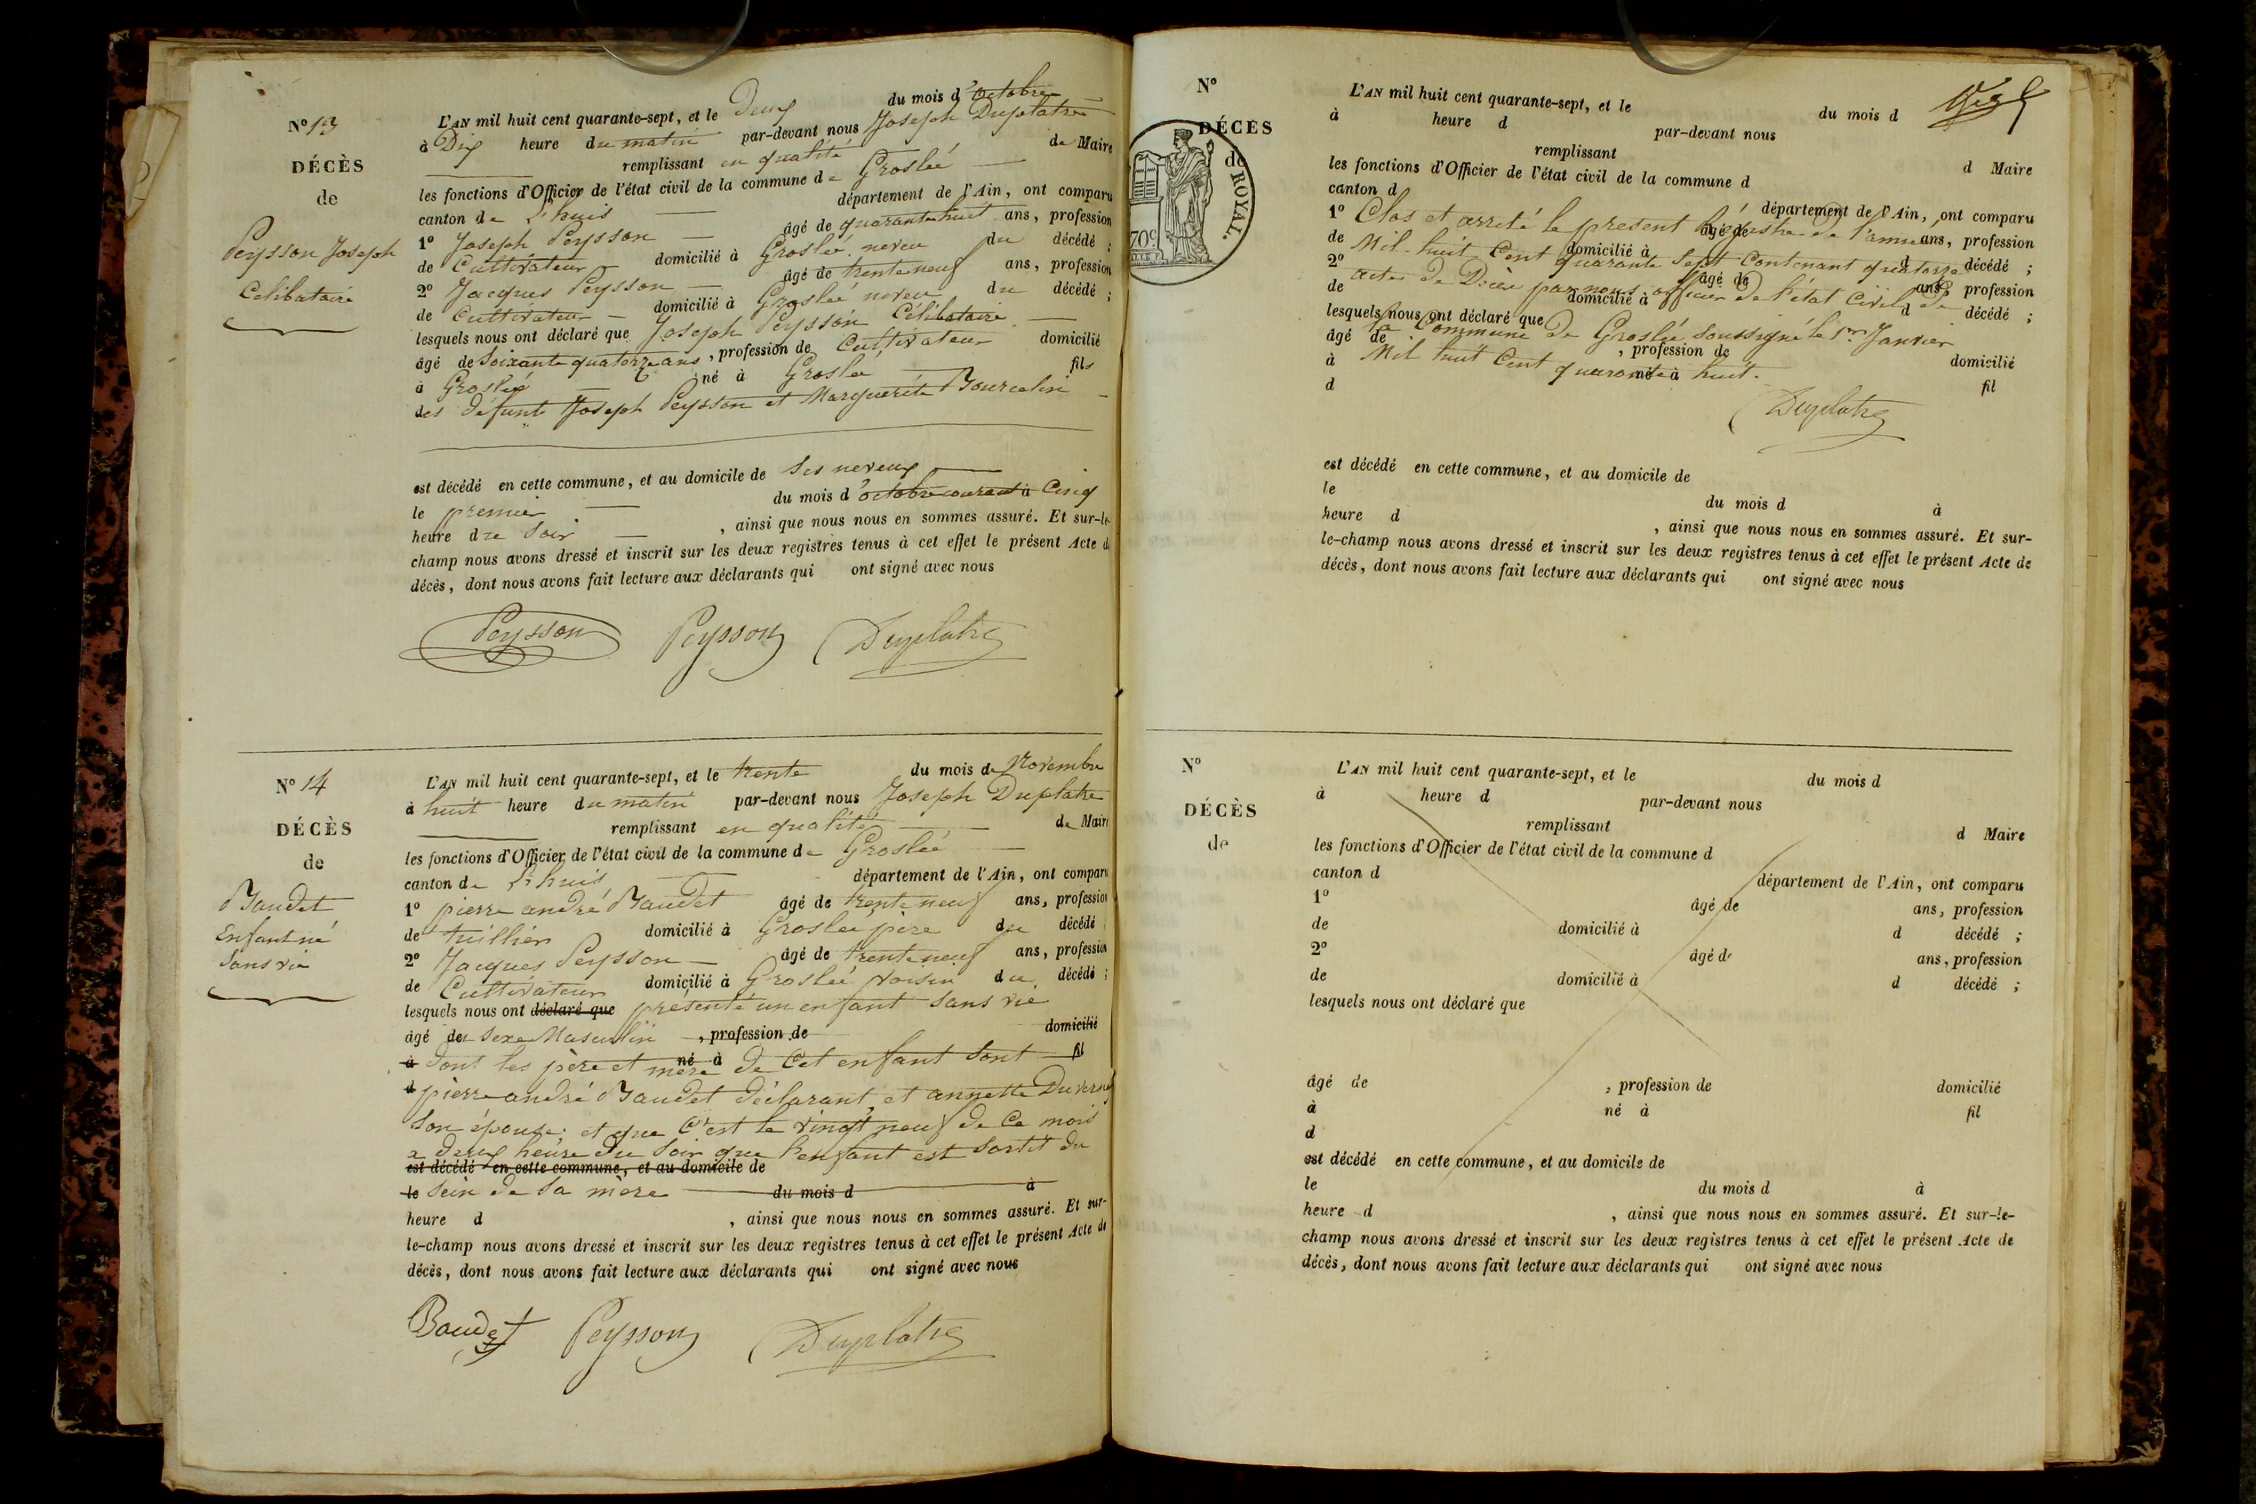 N° 13
DÉCÈS
de
Peysson Joseph
Célibataire
L'AN mil huit cent quarante-sept, et le Deux du mois d'octobre
à Dix heure du matin par-devant nous Joseph Duplatre
remplissant en qualité de Maire
les fonctions d'Officier de l'état civil de la commune de Groslée
canton de L'huis département de l'Ain, ont comparu
1° Joseph Peysson âgé de quarante huit ans, profession
de Cultivateur domicilié à Groslée neveu du décédé ;
2° Jacques Peysson âgé de trente neuf ans, profession
de Cultivateur domicilié à Groslée neveu du décédé ;
lesquels nous ont déclaré que Joseph Peysson Célibataire
âgé de Soixante quatorze ans, profession de Cultivateur domicilié
à Groslée né à Groslée fils
des défunts Joseph Peysson et Marguerite Bourcelin
est décédé en cette commune, et au domicile de Ses neveux
le premier du mois d'octobre courant à Cinq
heure du Soir, ainsi que nous nous en sommes assuré. Et sur-le-
champ nous avons dressé et inscrit sur les deux registres tenus à cet effet le présent Acte d
décès, dont nous avons fait lecture aux déclarants qui ont signé avec nous
Peysson Peysson Duplatre
N° 14
DÉCÈS
de
Baudet
Enfant né
Sans vie
L'AN mil huit cent quarante-sept, et le trente du mois de Novembre
à huit heure du matin par-devant nous Joseph Duplatre
remplissant en qualité de Maire
les fonctions d'Officier de l'état civil de la commune de Groslée
canton de L'huis département de l'Ain, ont comparu
1° pierre andré Baudet âgé de trente neuf ans, profession
de tuillier domicilié à Groslée père du décédé
2° Jacques Peysson âgé de trente neuf ans, profession
de Cultivateur domicilié à Groslée voisin du décédé ;
lesquels nous ont déclaré que présenté un enfant Sans vie
âgé du Sexe Masculin, profession de domicilié
à dont les père et mère né à de Cet enfant Sont fil
d pierre andré Baudet déclarant, et annette Duvernay
Son épouse; et que C'est le vingt neuf de Ce mois
a deux heure du Soir que l'enfant est Sortit du
est décédé en cette commune, et au domicile de
le Sein de Sa mère du mois d à
heure d , ainsi que nous nous en sommes assuré. Et sur-
le-champ nous avons dressé et inscrit sur les deux registres tenus à cet effet le présent Acte de
décès, dont nous avons fait lecture aux déclarants qui ont signé avec nous
Baudet Peysson Duplatre
N°
DÉCÈS
de
ROYAL.
70c
L'AN mil huit cent quarante-sept, et le du mois d
à heure d par-devant nous
remplissant d Maire
les fonctions d'Officier de l'état civil de la commune d
canton d département de l'Ain, ont comparu
1° âgé de ans, profession
Clos et arrêté le present Régistre de l'année
de domicilié à d décédé ;
Mil-huit Cent quarante Sept Contenant quatorze
2° âgé de ans, profession
actes de Décès par nous officier de l'état Civil de
de domicilié à d décédé ;
lesquels nous ont déclaré que
la Commune de Groslée Soussigné le 1er Janvier
âgé de , profession de domicilié
Mil huit Cent quarante huit.
à né à fil
d
Duplatre
est décédé en cette commune, et au domicile de
le du mois d à
heure d , ainsi que nous nous en sommes assuré. Et sur-
le-champ nous avons dressé et inscrit sur les deux registres tenus à cet effet le présent Acte de
décès, dont nous avons fait lecture aux déclarants qui ont signé avec nous
N°
DÉCÈS
de
L'AN mil huit cent quarante-sept, et le du mois d
à heure d par-devant nous
remplissant d Maire
les fonctions d'Officier de l'état civil de la commune d
canton d département de l'Ain, ont comparu
1° âgé de ans, profession
de domicilié à d décédé ;
2° âgé de ans, profession
de domicilié à d décédé ;
lesquels nous ont déclaré que
âgé de , profession de domicilié
à né à fil
d
est décédé en cette commune, et au domicile de
le du mois d à
heure d , ainsi que nous nous en sommes assuré. Et sur-le-
champ nous avons dressé et inscrit sur les deux registres tenus à cet effet le présent Acte de
décès, dont nous avons fait lecture aux déclarants qui ont signé avec nous